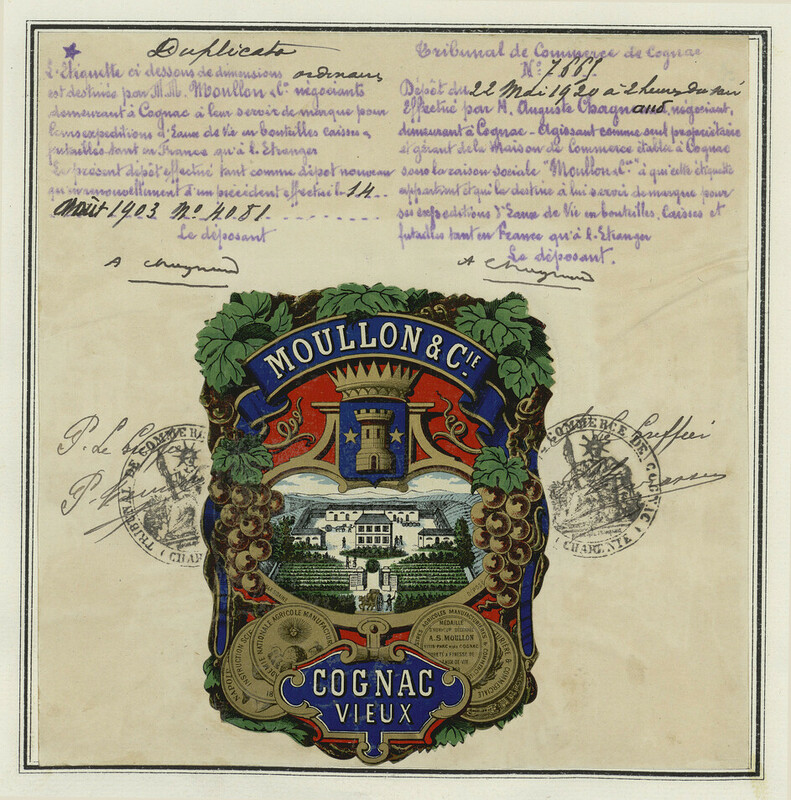 Duplicata
L'Etiquette ci dessous de dimensions ordinaires
est destinée par M.M. Moullon & Cie négociants
demeurant à Cognac à leur servir de marque pour
leurs expéditions d'Eaux de Vie en bouteilles caisses &
futailles tant en France qu'à l'Etranger
Le présent dépôt effectué tant comme dépôt nouveau
qu'en renouvellement d'un précédent effectué le 14
Août 1903 No 4081
Le déposant
Tribunal de Commerce de Cognac
No 7665
Dépôt du 22 Mai 1920 à 2 heures du soir
Effectué par M. Auguste Chagnaud, négociant,
demeurant à Cognac - Agissant comme seul propriétaire
et gérant de la Maison de Commerce établie à Cognac
sous la raison sociale "Moullon & Cie" à qui cette étiquette
appartient et qui la destine à lui servir de marque pour
ses expéditions d'Eaux de Vie en bouteilles, caisses et
futailles tant en France qu'à l'Etranger
Le déposant.
MOULLON & CIE
P. Le Greffier
TRIBUNAL DE COMMERCE
CHAR
Greffier
COMMERCE DE COGNAC
CHARENTE
ACADÉMIE NATIONALE AGRICOLE MANUFACTUR
INSTRUCTION
AGRICOLES MANUFACTURIERS & COMM
MEDAILLE
D'HONNEUR DÉCERNÉE
A.S. MOULLON
COGNAC
VIEUX